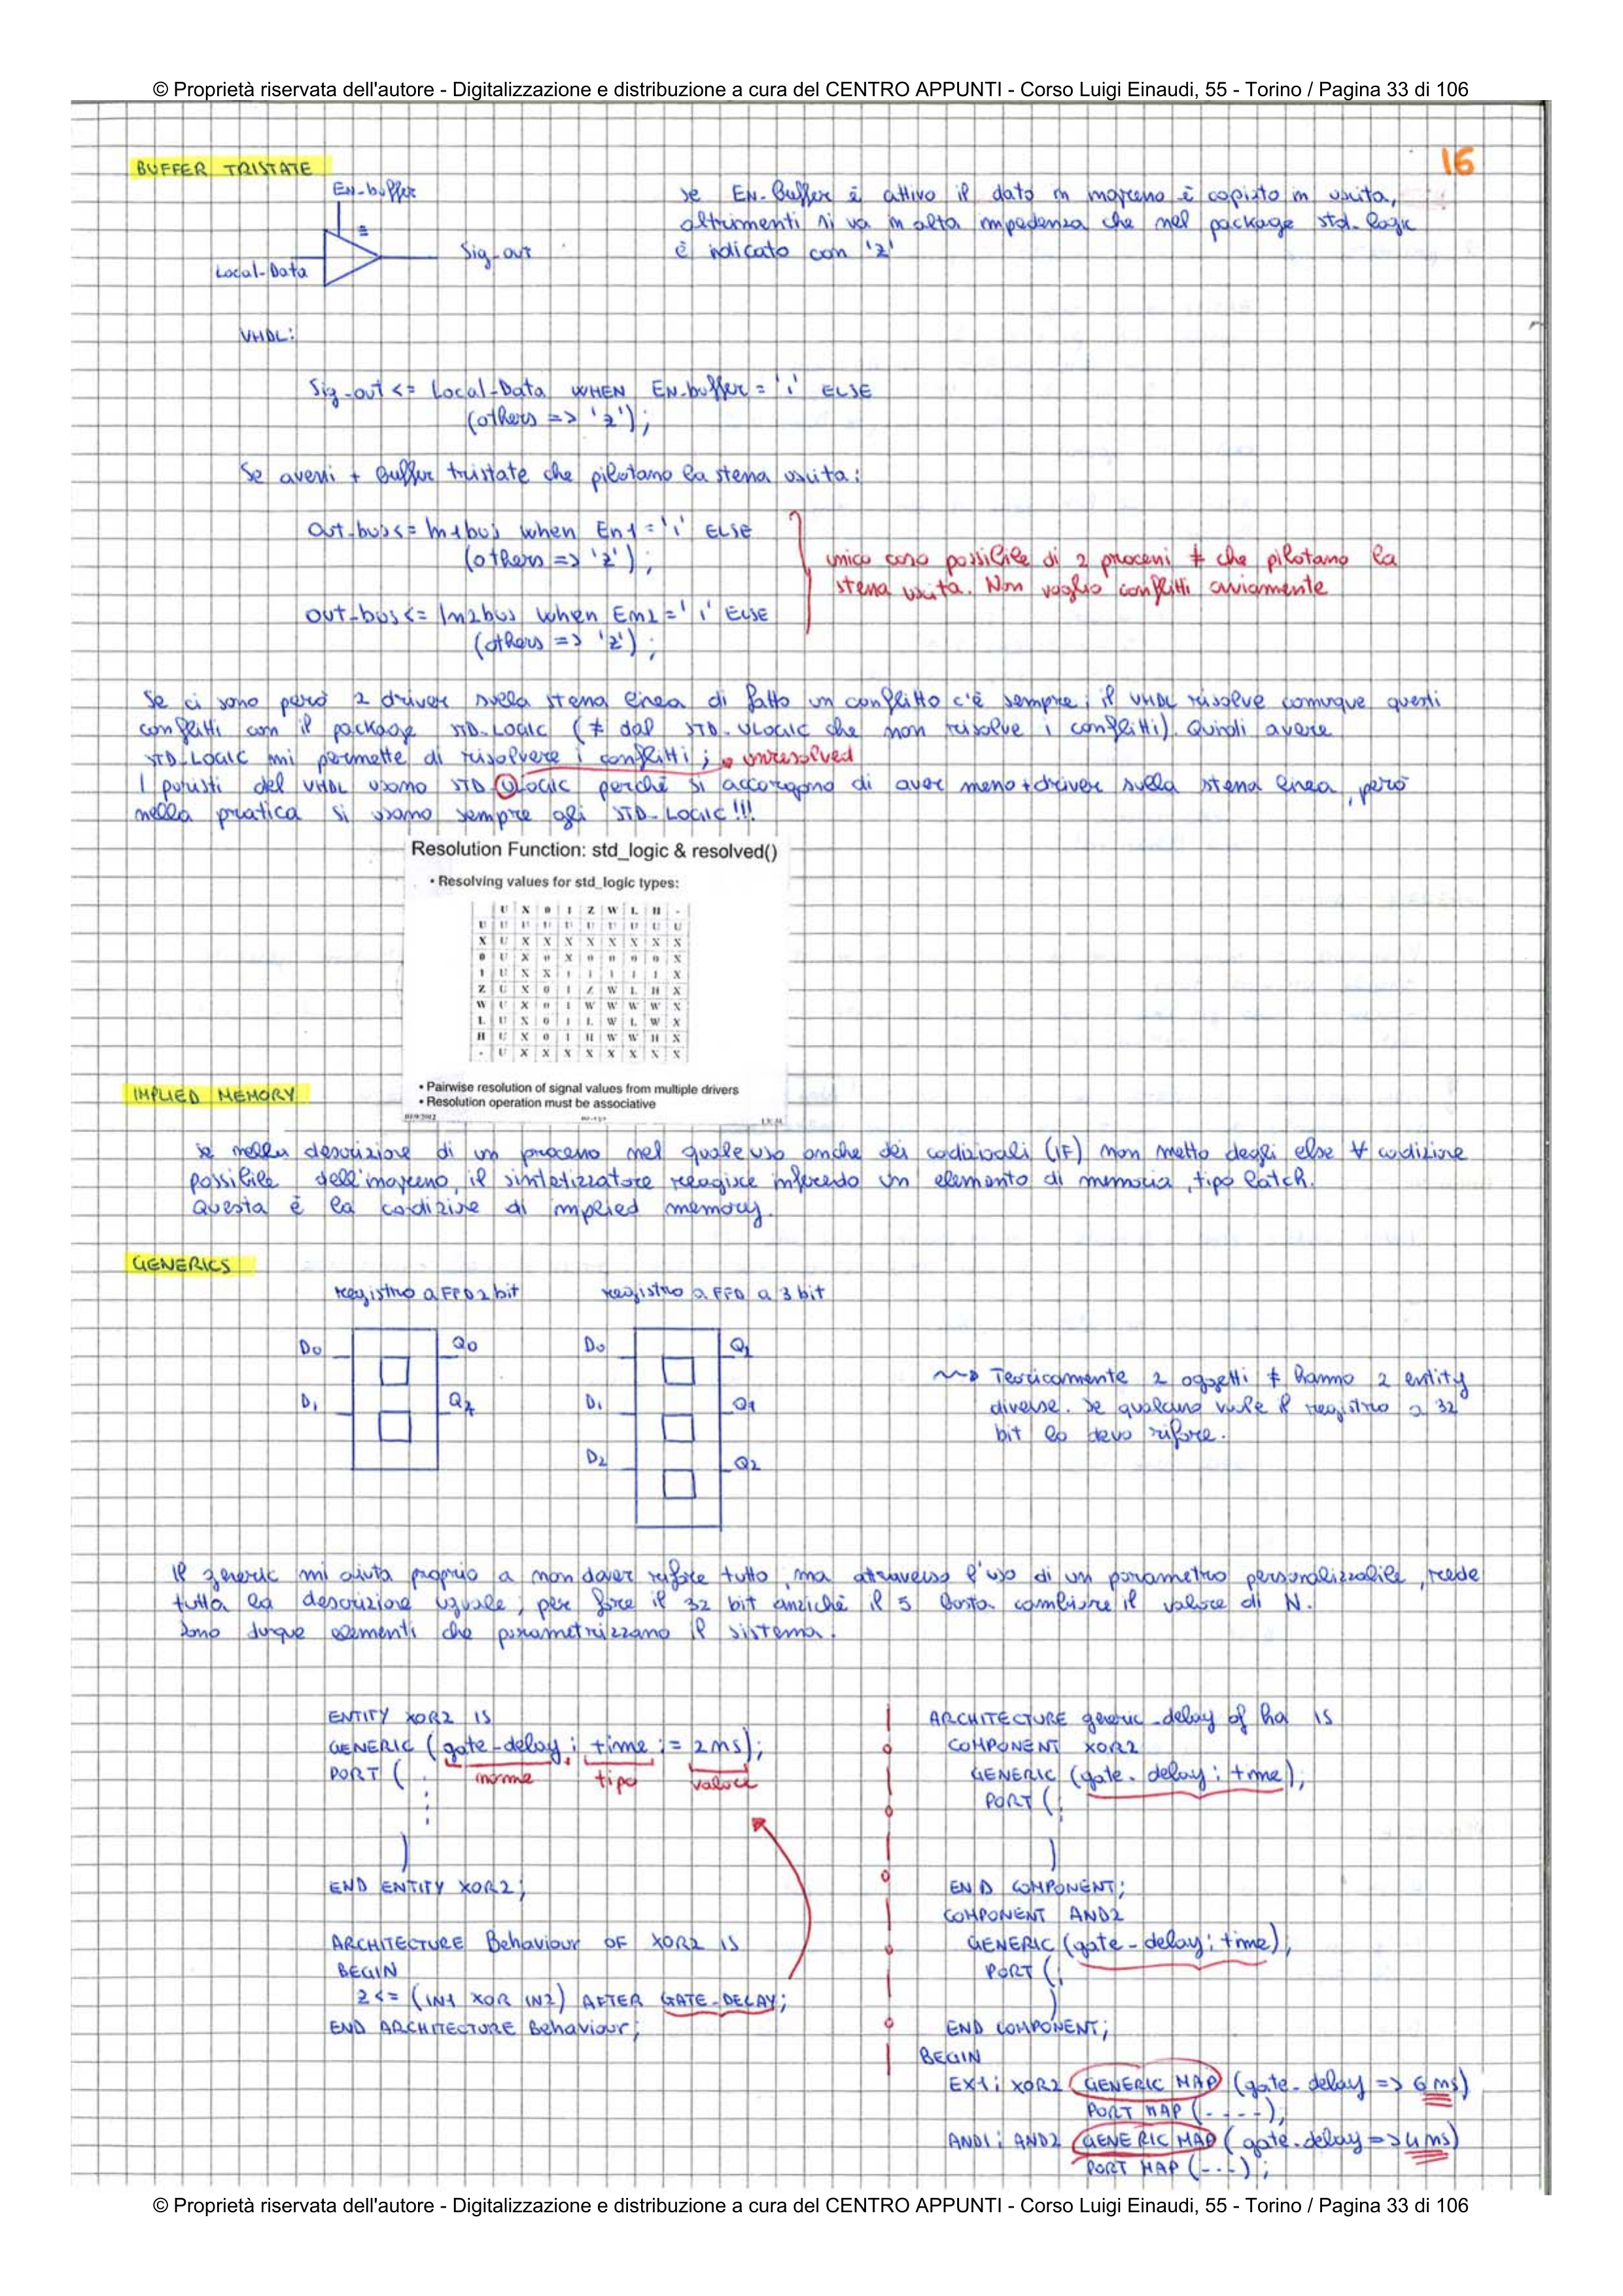 © Proprietà riservata dell'autore - Digitalizzazione e distribuzione a cura del CENTRO APPUNTI - Corso Luigi Einaudi, 55 - Torino / Pagina 33 di 106
16
BUFFER TRISTATE
EN-buffer
Local-Data
Sig-out
se EN-Buffer è attivo il dato in ingresso è copiato in uscita,
altrimenti si va in alta impedenza che nel package std-logic
è indicato con 'z'
VHDL:
Sig-out <= Local-Data WHEN EN-buffer = '1' ELSE
(others => 'z');
Se avessi + Buffer tristate che pilotano la stessa uscita:
Out-bus <= In1bus when En1 = '1' ELSE
(others => 'z');
out-bus <= In2bus when En2 = '1' ELSE
(others => 'z');
unico caso possibile di 2 processi ≠ che pilotano la
stessa uscita. Non voglio conflitti ovviamente
Se ci sono però 2 driver sulla stessa linea di fatto un conflitto c'è sempre; il VHDL risolve comunque questi
conflitti con il package STD-LOGIC (≠ dal STD-ULOGIC che non risolve i conflitti). Quindi avere
STD-LOGIC mi permette di risolvere i conflitti; unresolved
I puristi del VHDL usano STD-ULOGIC perché si accorgono di aver messo + driver sulla stessa linea, però
nella pratica si usano sempre gli STD-LOGIC!!!
Resolution Function: std_logic & resolved()
• Resolving values for std_logic types:
U X 0 1 Z W L H -
U U U U U U U U U U
X U X X X X X X X X
0 U X 0 X 0 0 0 0 X
1 U X X 1 1 1 1 1 X
Z U X 0 1 Z W L H X
W U X 0 1 W W W W X
L U X 0 1 L W L W X
H U X 0 1 H W W H X
- U X X X X X X X X
• Pairwise resolution of signal values from multiple drivers
• Resolution operation must be associative
IMPLIED MEMORY
se nella descrizione di un processo nel quale uso anche dei codizionali (IF) non metto degli else ∀ codizione
possibile dell'ingresso, il sintetizzatore reagisce inferendo un elemento di memoria, tipo latch.
Questa è la codizione di implied memory.
GENERICS
registro a FFD 2 bit
registro a FFD a 3 bit
D0 Q0
D1
D0
D1 Q1
D2 Q2
⇝ Teoricamente 2 oggetti ≠ hanno 2 entity
diverse. Se qualcuno vuole il registro a 32
bit lo devo rifare.
Il generic mi aiuta proprio a non dover rifare tutto, ma attraverso l'uso di un parametro personalizzabile, rende
tutta la descrizione uguale, per fare il 32 bit anziché il 5 basta cambiare il valore di N.
Sono dunque elementi che parametrizzano il sistema.
ENTITY XOR2 IS
GENERIC (gate-delay : time := 2ns);
nome tipo valore
PORT (
)
END ENTITY XOR2;
ARCHITECTURE Behaviour OF XOR2 IS
BEGIN
Z <= (IN1 XOR IN2) AFTER GATE-DELAY;
END ARCHITECTURE Behaviour;
ARCHITECTURE generic-delay of ha IS
COMPONENT XOR2
GENERIC (gate-delay : time);
PORT (;
)
END COMPONENT;
COMPONENT AND2
GENERIC (gate-delay : time);
PORT (;
)
END COMPONENT;
BEGIN
EX1: XOR2 GENERIC MAP (gate-delay => 6 ns)
PORT MAP (----);
AND1: AND2 GENERIC MAP (gate-delay => 4 ns)
PORT MAP (---);
© Proprietà riservata dell'autore - Digitalizzazione e distribuzione a cura del CENTRO APPUNTI - Corso Luigi Einaudi, 55 - Torino / Pagina 33 di 106